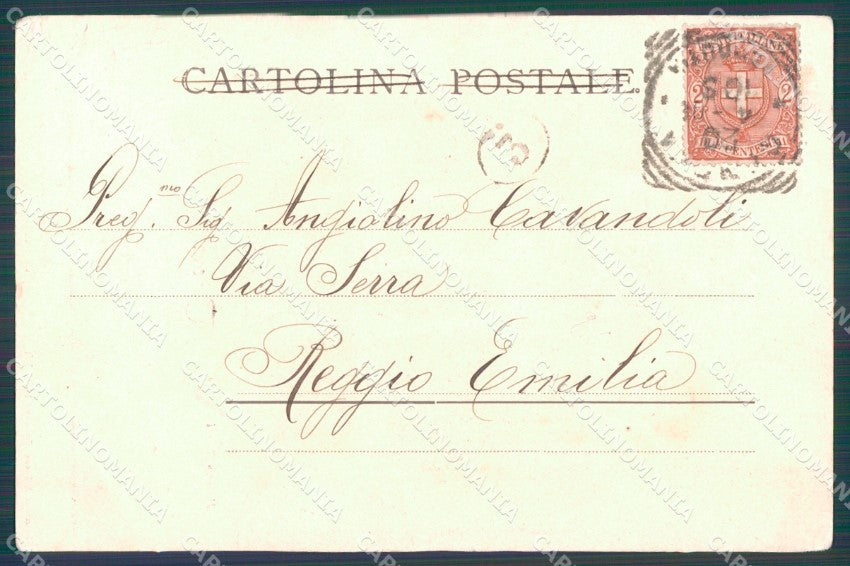 CARTOLINA POSTALE.
2 2
Preg.mo Sig Angiolino Cavandoli
Via Serra
Reggio Emilia
CARTOLINOMANIA